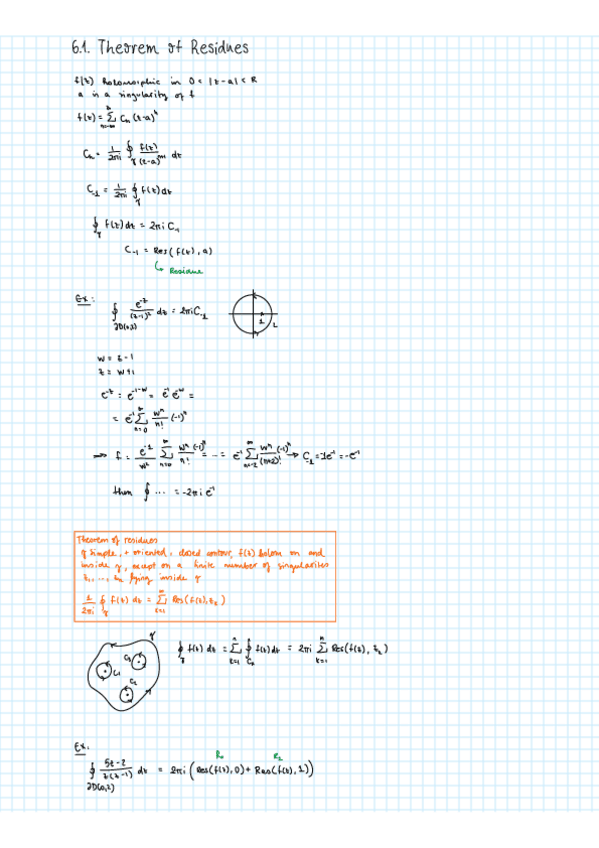 6.1. Theorem of Residues
f(z) Holomorphic in 0 < |z-a| < R
a is a singularity of f
f(z) = ∑_{n=-∞}^{∞} C_n (z-a)^n
C_n = 1/2πi ∮_γ f(z)/(z-a)^{n+1} dz
C_{-1} = 1/2πi ∮_γ f(z)dz
∮_γ f(z)dz = 2πi C_{-1}
C_{-1} = Res(f(z), a)
↳ Residue
Ex:
∮_{∂D(0,2)} e^{-z}/(z-1)² dz = 2πi C_{-1}
1 2
w = z-1
z = w+1
e^{-z} = e^{-1-w} = e^{-1} e^{-w} =
= e^{-1} ∑_{n=0}^{∞} w^n/n! (-1)^n
⇒ f = e^{-1}/w² ∑_{n=0}^{∞} w^n/n! (-1)^n = ... = e^{-1} ∑_{n=-2}^{∞} w^n/(n+2)! (-1)^n → C_{-1} = -1e^{-1} = -e^{-1}
then ∮ ... = -2πi e^{-1}
Theorem of residues
γ simple, + oriented, closed contour, f(z) holom on and
inside γ, except on a finite number of singularites
z_1, ..., z_n lying inside γ
1/2πi ∮_γ f(z) dz = ∑_{k=1}^{n} Res(f(z), z_k)
γ
C_1
C_2
∮_γ f(z) dz = ∑_{k=1}^{n} ∮_{C_k} f(z)dz = 2πi ∑_{k=1}^{n} Res(f(z), z_k)
Ex.
∮_{∂D(0,2)} 5z-2/z(z-1) dz = 2πi (Res(f(z),0) + Res(f(z),1))